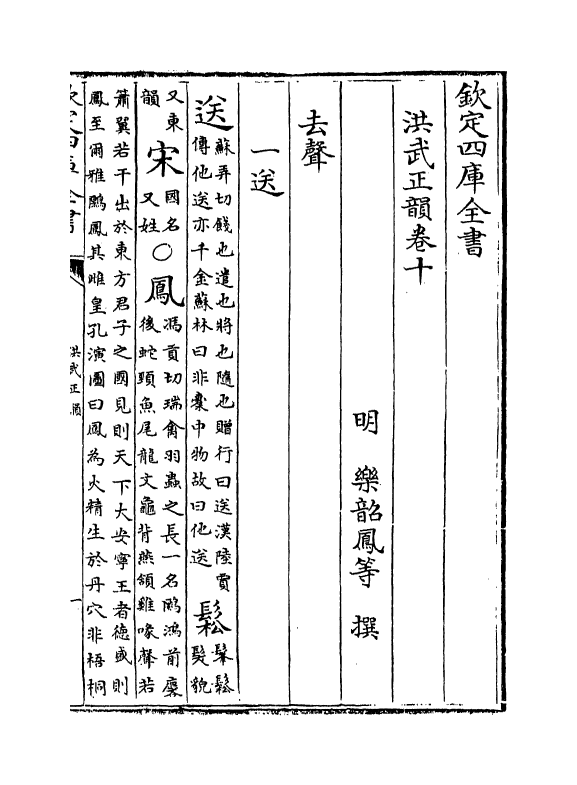 欽定四庫全書
洪武正韻卷十
明 樂韶鳳等 撰
去聲
一送
送
蘇弄切餞也遣也將也隨也贈行曰送漢陸賈
傳他送亦千金蘇林曰非橐中物故曰他送
鬆
鬆
髮貌
又東
韻
宋
國名
又姓
〇
鳳
馮貢切瑞禽羽蟲之長一名鶠鴻前麇
後蛇頸魚尾龍文龜背燕頷雞喙聲若
簫翼若干出於東方君子之國見則天下大安寧王者德盛則
鳳至爾雅鶠鳳其雌皇孔演圖曰鳳為火精生於丹穴非梧桐
欽定四庫全書
洪武正韻
一